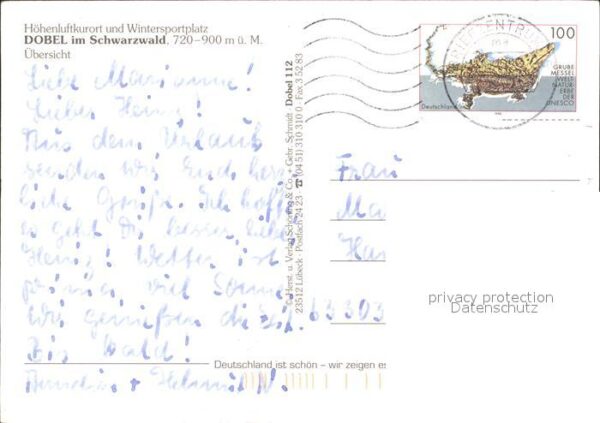 Höhenluftkurort und Wintersportplatz
DOBEL im Schwarzwald, 720–900 m ü. M.
Übersicht
Liebe Marianne!
Lieber Heinz!
Aus dem Urlaub
senden wir Euch herz-
liche Grüße. Ich hoffe
es geht Dir besser lieber
Heinz! Wetter ist
prima, viel Sonne
Wir genießen die
Bis bald!
Helmut
© Herst. u. Verlag Schöning & Co. + Gebr. Schmidt
23512 Lübeck · Postfach 24 23 · ☎ (04 51) 310 310 0 · Fax 3 52 83
Dobel 112
100
GRUBE
MESSEL
WELT
NATUR
ERBE
DER
UNESCO
Deutschland
BRIEFZENTRUM
Frau
Ma
Ha
63303
privacy protection
Datenschutz
Deutschland ist schön – wir zeigen es